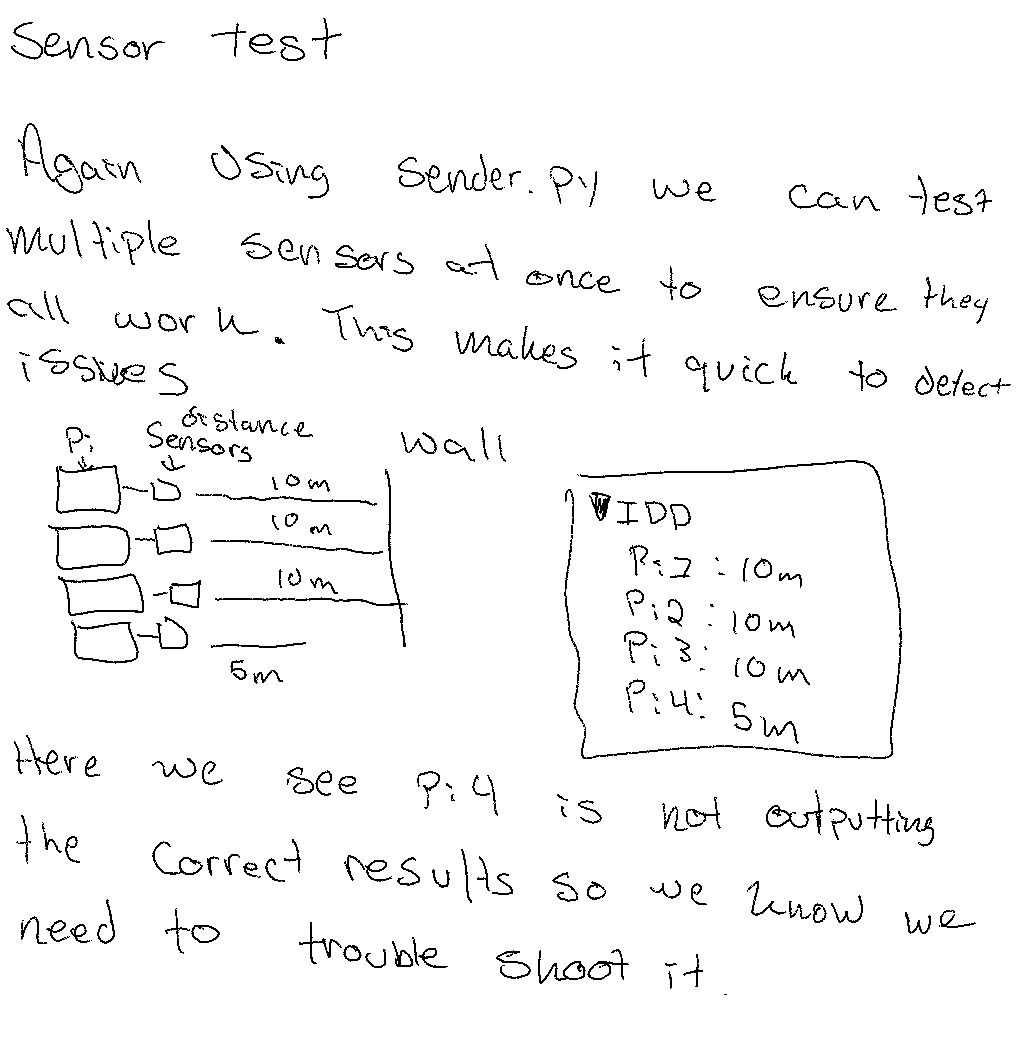 Sensor test
Again Using sender.py we can test
multiple sensors at once to ensure they
all work. This makes it quick to detect
issues
Pi
distance
Sensors
wall
10m
10m
10m
5m
IDD
Pi1: 10m
Pi2: 10m
Pi3: 10m
Pi4: 5m
Here we see Pi4 is not outputting
the correct results so we know we
need to trouble shoot it.